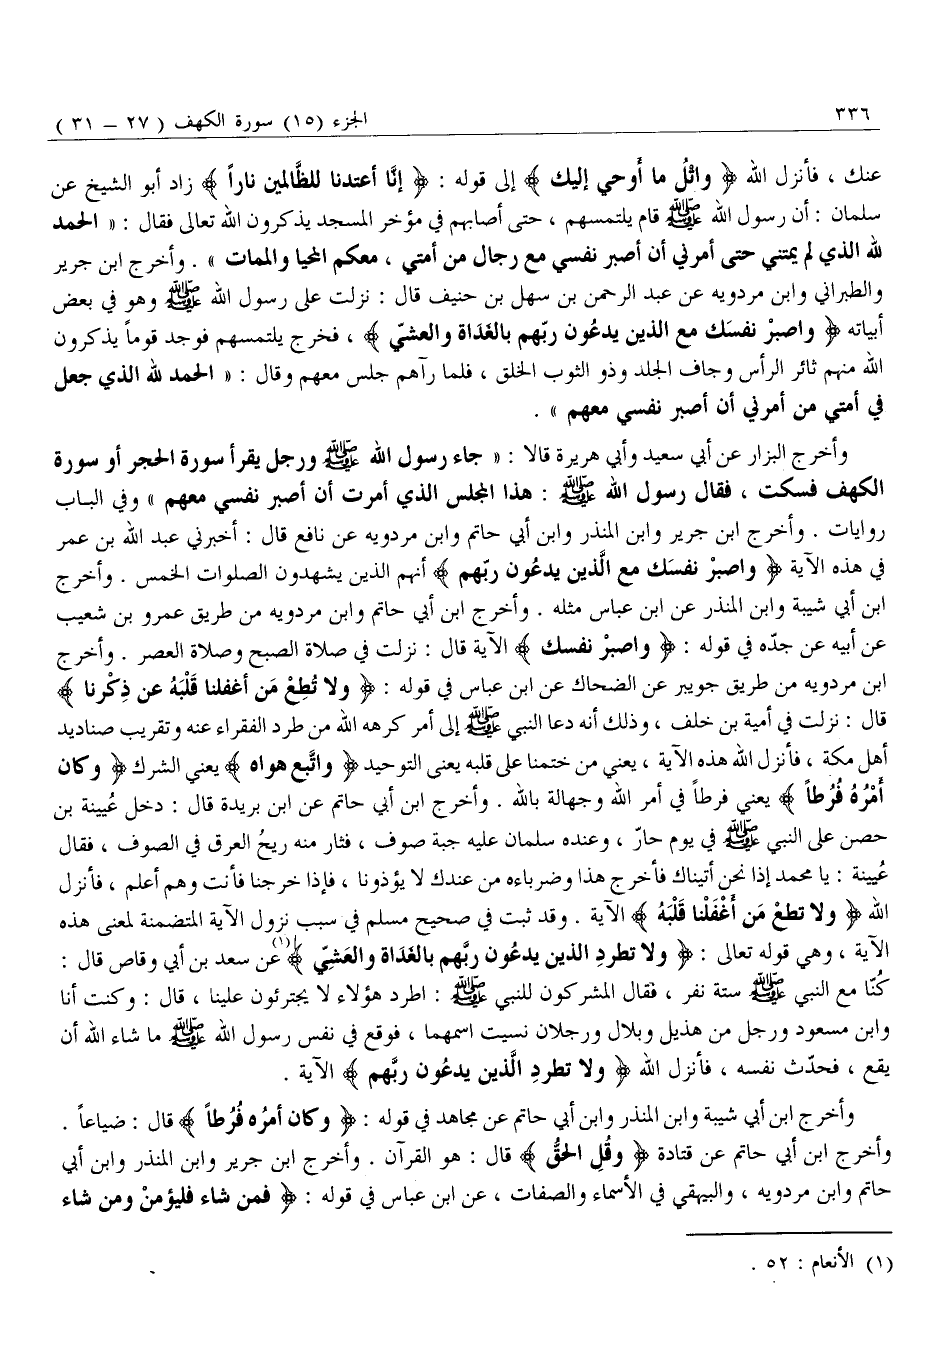 ٣٣٦
الجزء (١٥) سورة الكهف ( ٢٧ – ٣١ )
عنك ، فأنزل الله ﴿ واتْلُ ما أُوحي إليك ﴾ إلى قوله : ﴿ إنَّا أعتدنا للظَّالمين ناراً ﴾ زاد أبو الشيخ عن
سلمان : أن رسول الله ﷺ قام يلتمسهم ، حتى أصابهم في مؤخر المسجد يذكرون الله تعالى فقال : « الحمد
لله الذي لم يمتني حتى أمرني أن أصبر نفسي مع رجال من أمتي ، معكم المحيا والممات » . وأخرج ابن جرير
والطبراني وابن مردويه عن عبد الرحمن بن سهل بن حنيف قال : نزلت على رسول الله ﷺ وهو في بعض
أبياته ﴿ واصبرْ نفسَك مع الذين يدعُون ربّهم بالغَدَاة والعشيّ ﴾ ، فخرج يلتمسهم فوجد قوماً يذكرون
الله منهم ثائر الرأس وجاف الجلد وذو الثوب الخلق ، فلما رآهم جلس معهم وقال : « الحمد لله الذي جعل
في أمتي من أمرني أن أصبر نفسي معهم » .
وأخرج البزار عن أبي سعيد وأبي هريرة قالا : « جاء رسول الله ﷺ ورجل يقرأ سورة الحجر أو سورة
الكهف فسكت ، فقال رسول الله ﷺ : هذا المجلس الذي أمرت أن أصبر نفسي معهم » وفي الباب
روايات . وأخرج ابن جرير وابن المنذر وابن أبي حاتم وابن مردويه عن نافع قال : أخبرني عبد الله بن عمر
في هذه الآية ﴿ واصبرْ نفسَك مع الَّذين يدعُون ربّهم ﴾ أنهم الذين يشهدون الصلوات الخمس . وأخرج
ابن أبي شيبة وابن المنذر عن ابن عباس مثله . وأخرج ابن أبي حاتم وابن مردويه من طريق عمرو بن شعيب
عن أبيه عن جدّه في قوله : ﴿ واصبرْ نفسك ﴾ الآية قال : نزلت في صلاة الصبح وصلاة العصر . وأخرج
ابن مردويه من طريق جويبر عن الضحاك عن ابن عباس في قوله : ﴿ ولا تُطِعْ مَن أغفلنا قَلْبَهُ عن ذِكْرنا ﴾
قال : نزلت في أمية بن خلف ، وذلك أنه دعا النبي ﷺ إلى أمر كرهه الله من طرد الفقراء عنه وتقريب صناديد
أهل مكة ، فأنزل الله هذه الآية ، يعني من ختمنا على قلبه يعنى التوحيد ﴿ واتَّبع هواه ﴾ يعني الشرك ﴿ وكان
أَمْرُهُ فُرُطاً ﴾ يعني فرطاً في أمر الله وجهالة بالله . وأخرج ابن أبي حاتم عن ابن بريدة قال : دخل عُيينة بن
حصن على النبي ﷺ في يوم حارّ ، وعنده سلمان عليه جبة صوف ، فثار منه ريحُ العرق في الصوف ، فقال
عُيينة : يا محمد إذا نحن أتيناك فأخرج هذا وضرباءه من عندك لا يؤذونا ، فإذا خرجنا فأنت وهم أعلم ، فأنزل
الله ﴿ ولا تطعْ مَن أَغْفَلْنا قَلْبَهُ ﴾ الآية . وقد ثبت في صحيح مسلم في سبب نزول الآية المتضمنة لمعنى هذه
الآية ، وهي قوله تعالى : ﴿ ولا تطردِ الذين يدعُون ربَّهم بالغَدَاة والعَشيّ ﴾(١) عن سعد بن أبي وقاص قال :
كُنّا مع النبي ﷺ ستة نفر ، فقال المشركون للنبي ﷺ : اطرد هؤلاء لا يجترئون علينا ، قال : وكنت أنا
وابن مسعود ورجل من هذيل وبلال ورجلان نسيت اسمهما ، فوقع في نفس رسول الله ﷺ ما شاء الله أن
يقع ، فحدّث نفسه ، فأنزل الله ﴿ ولا تطردِ الَّذين يدعُون ربَّهم ﴾ الآية .
وأخرج ابن أبي شيبة وابن المنذر وابن أبي حاتم عن مجاهد في قوله : ﴿ وكان أمرُه فُرُطاً ﴾ قال : ضياعاً .
وأخرج ابن أبي حاتم عن قتادة ﴿ وقُلِ الحَقُّ ﴾ قال : هو القرآن . وأخرج ابن جرير وابن المنذر وابن أبي
حاتم وابن مردويه ، والبيهقي في الأسماء والصفات ، عن ابن عباس في قوله : ﴿ فمن شاء فليؤمنْ ومن شاء
(١) الأنعام : ٥٢ .